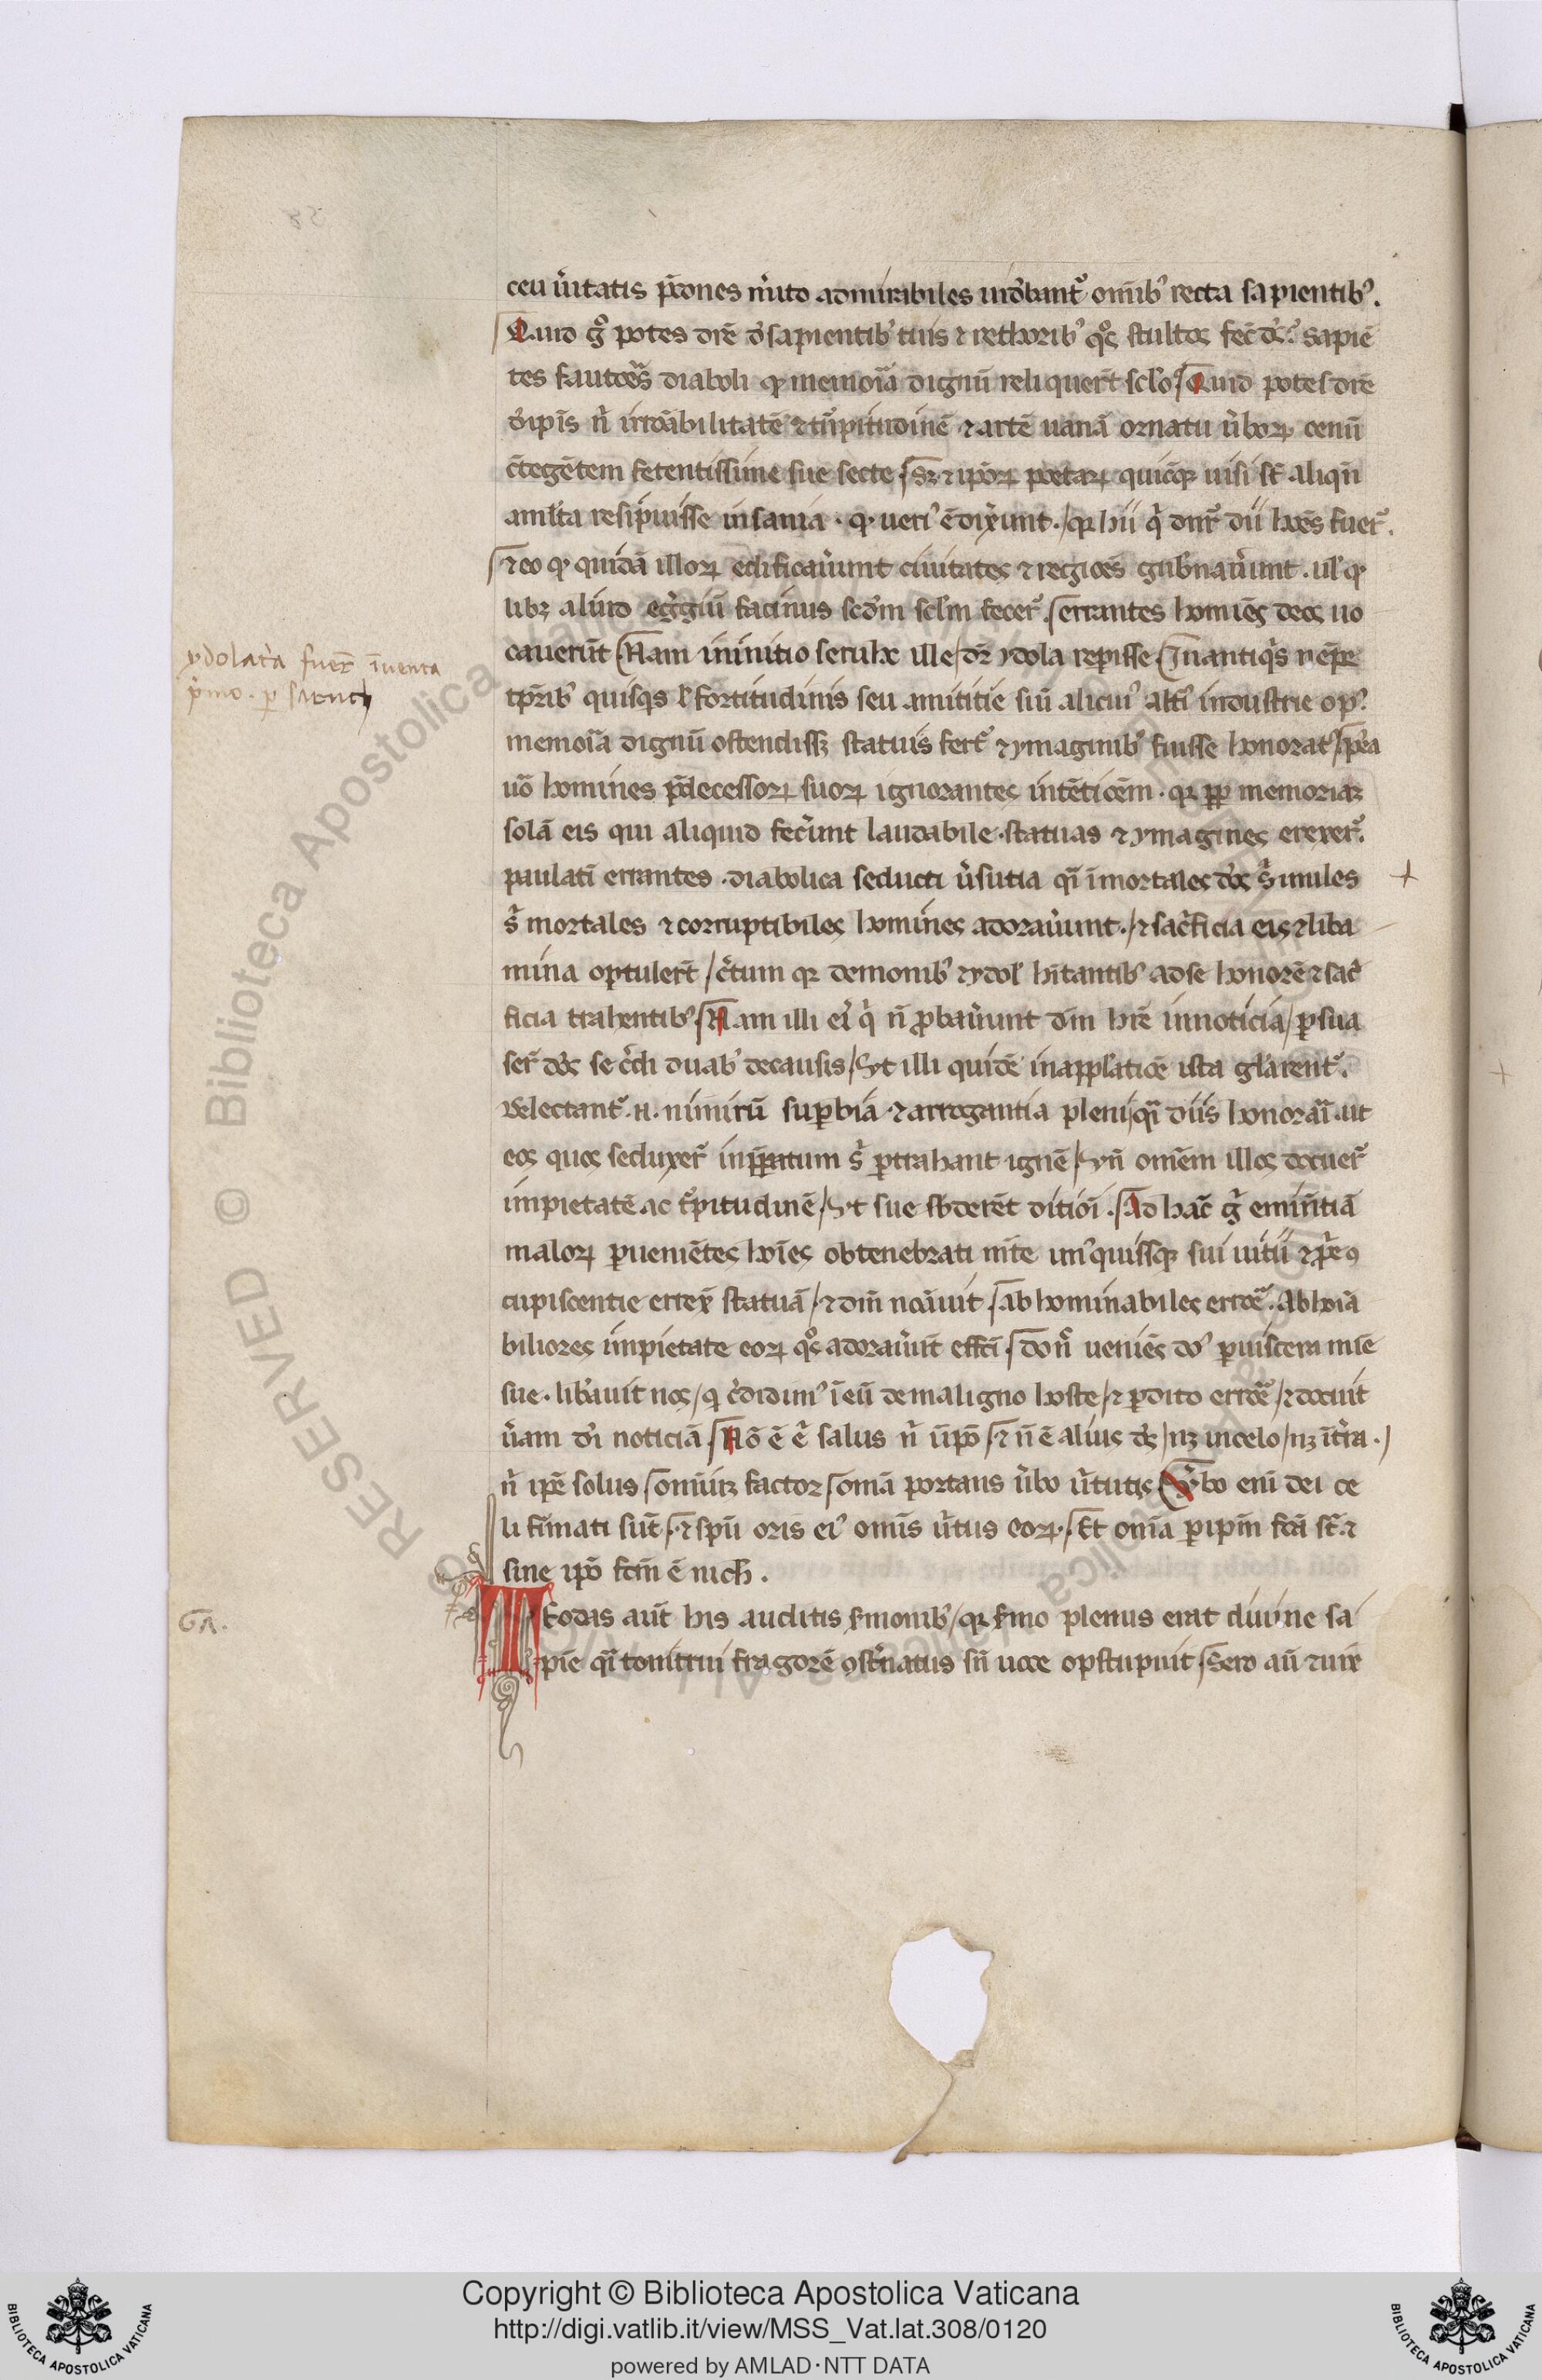 ceu ũitatis p̃cones m̃ito admirabiles uidẽbant᷑ omĩbꝰ recta sapientibꝰ.
Quid gͦ potes diẽ d̾ sapientibꝰ tuis ⁊ rethoribꝰ qͦs stultos fec̃ ds̾ sapiẽ
tes fautoẽs diaboli qͥ memoĩa dignũ reliquer̃t sclo Quid potes diẽ
d̾ ip̃is n̾ irrõabilitatẽ ⁊ tᷣpitudinẽ ⁊ artẽ uanã ornatu ũboꝝ cenũ
c̃tegẽtem fetentissime sue secte Sꝫ ⁊ ip̃oꝝ poetaꝝ quicũqꝫ uisi st̃ aliqñ
resipuisse insania. qꝫ ueꝝ ẽ dix̾unt. qꝛ hii qͥ dn̾r dii hoẽs fuer᷑.
⁊ eo qꝫ quidã illoꝝ edificauͥunt ciuitates ⁊ regiões gub̾nauͥunt. ul̾ qꝫ
libꝫ aliud eg̾giũ facinus scd̾m sc̾lm fecer᷑. errantes homiẽs deos uo
cauerũt Nam in initio seruhc ille dr̃ ydola rep̃isse In antiqͥs nẽpe
tp̃ribꝰ quisqͥs l̾ fortitudinis seu amititie siũ alicuiꝰ altiꝰ industrie opꝰ
memoĩa dignũ ostendissꝫ statuis fert᷑ ⁊ ymaginibꝰ fuisse honorat᷑ p̾ea
uõ homines p̃decessoꝝ suoꝝ ignorantes intẽticẽm. qꝛ ꝓp memoriaꝫ
solã eis qui aliquid fec̾unt laudabile. statuas ⁊ ymagines erexer᷑.
paulati errantes. diabolica seducti ũsutia qͣi ĩmortales d̾os s̾imiles
s̾ mortales ⁊ corruptibiles homines adorauͥunt. ⁊ sac̾ficia eis ⁊ liba
mina optuler̃t c̾tum qꝛ demonibꝰ ⁊ ydol̾ hĩtantibꝰ ad se honorẽ ⁊ sac̾
ficia trahentibꝰ Nam illi ei̾ qͥ ñ ꝓbauͥunt dm̃ hr̃e in noticia ꝑsua
ser̃ d̾os se c̾di duabꝰ de causis Vt illi quidẽ in app̾latiõe ista gl̾arent᷑.
delectant᷑. n. nimirũ suꝑbia ⁊ arrogantia pleni qͣi diis honorãi ut
eos quos seduxer᷑ in p̃patum s̾ ꝑtrahant ignẽ Vñ om̃em illos docuer᷑
impietatẽ ac tᷣpitudinẽ Vt sue sb̾derẽt ditiõi. Ad hãc gͦ emin̾tiã
maloꝝ ꝑueniẽtes hoĩes obtenebrati mẽte unꝰquisqꝫ sui uitii ⁊ p̃e ꝯ
cupiscentie errex̃ statuã ⁊ dm̃ nõcauit ab hominabiles erroẽ. Abhoĩa
biliores impietate eoꝝ qͦs adorauͥũt effc̃i donͥ ueniẽs dñs ꝑ uiscera mie
sue. lib̾auit nos qͥ c̾didimꝰ ĩ eũ de maligno hoste ⁊ ꝑdito erroẽ ⁊ docuit
ũam di̾ noticiã Nõ ẽ ẽ̾ salus n̾ ĩ xp̃o ⁊ ñ ẽ alius ds̾ nꝫ in celo nꝫ ĩ tr̾a.
n̾ ip̃e solus omĩuꝫ factor omã portans ũbo ũtutis Ũbo eni dei ce
li fĩmati sũt ⁊ spũ oris eiꝰ omĩs ũtus eoꝝ. Et omĩa ꝑ ip̃m fc̃a st̃. ⁊
sine ip̃o fc̃m ẽ nich̾.
Teodas aũt his auditis ẜmonibꝰ qꝛ ẜmo plenus erat diuine sa
piẽ qͣi tonitrui fragorẽ ꝯst̾natus sñ uoce opstupuit Sero aũ ⁊ uix
ydolatͥa fuer̃t ĩuenta
pͥmo. ꝑ saruch
Gꝛ.
Copyright © Biblioteca Apostolica Vaticana
http://digi.vatlib.it/view/MSS_Vat.lat.308/0120
powered by AMLAD·NTT DATA
BIBLIOTECA APOSTOLICA VATICANA
BIBLIOTECA APOSTOLICA VATICANA